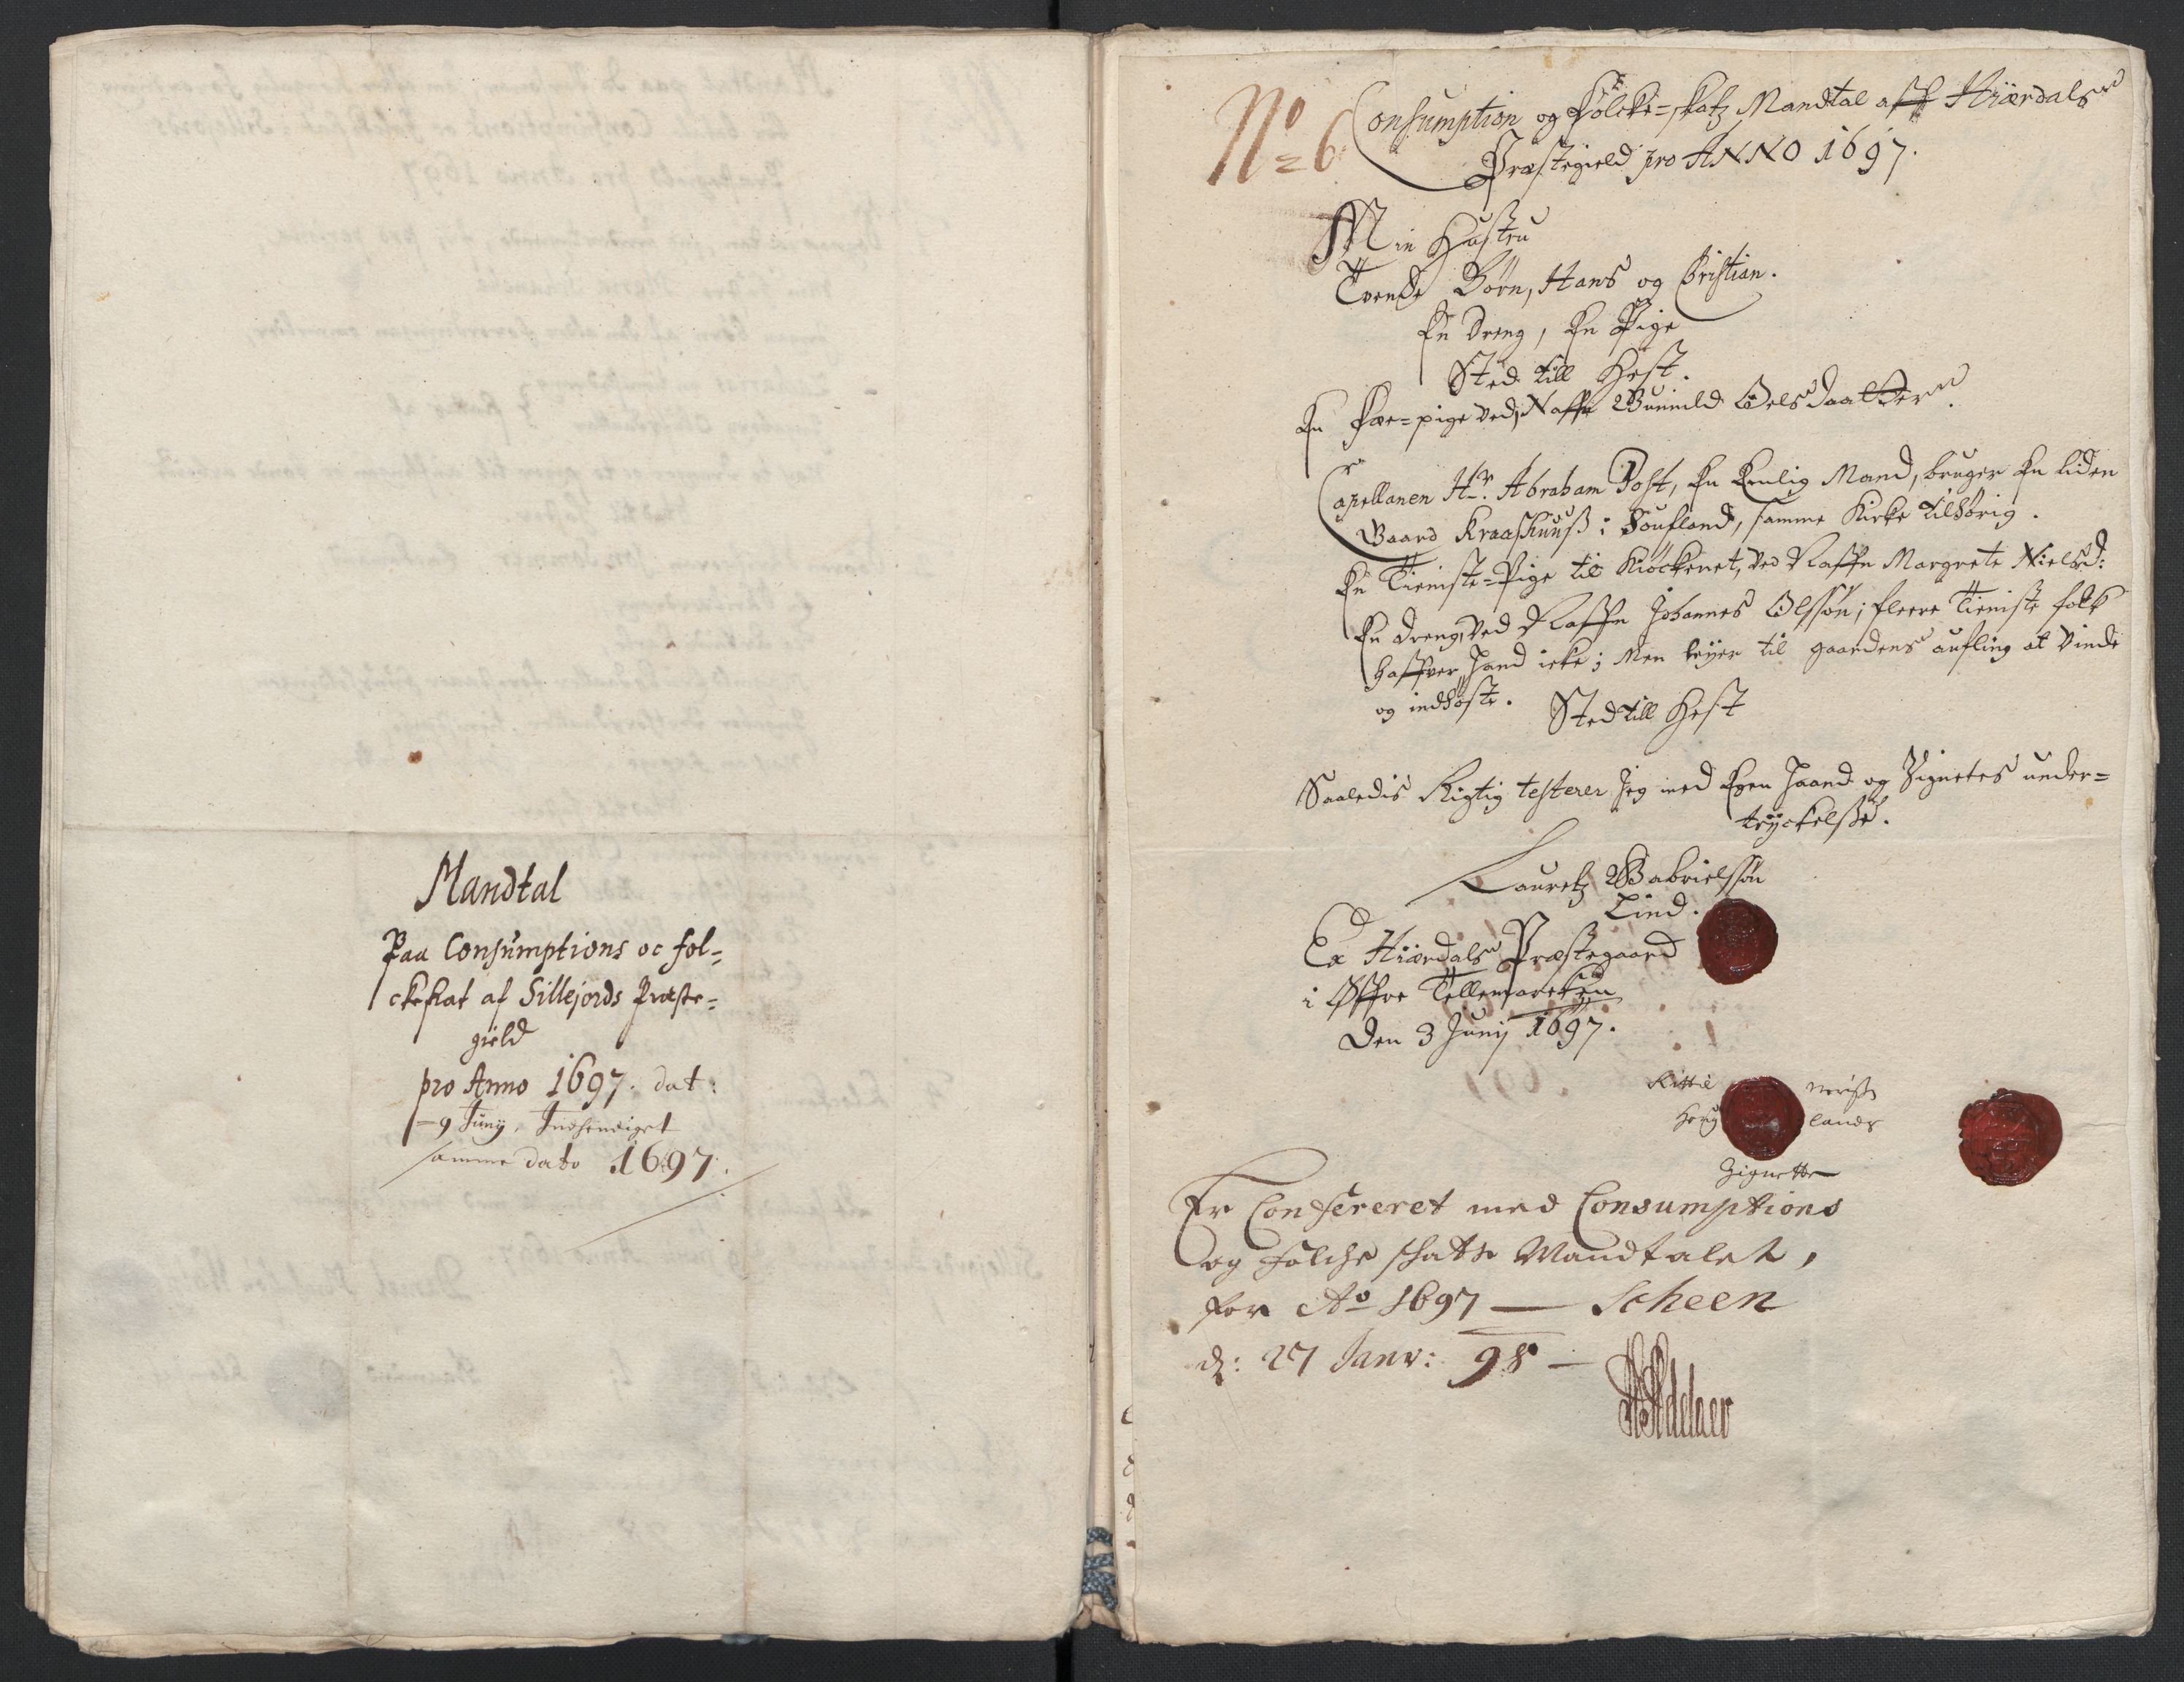 Mandtal
Paa Consumptions oc fol-
ckeskat af Sillejords Præste-
gield
pro Anno 1697. dat:
9 Junij, Indhendiget
samme dato 1697.
No 6.
Consumption og Folcke-skatz Mandtal aff Hiærdals
Præstegield pro ANNO 1697.
Min Hustru
Tvende Børn, Hans og Christian.
En Dreng, En Pige
Sted till Hest.
En Fæe-pige ved Naffn Gunnild Oelsdaatter.
Capellanen Hr. Abraham Post, En Enlig Mand, bruger En liden
Gaard Kraashuuß i Soufland, samme Kirke tilhørig.
En Tieniste-Pige til Kiøckenet, ved Naffn Margrete Nielsd:
En dreng, ved Naffn Johannes Olssøn; fleere Tieniste folk
haffver hand icke; Men leyer til gaardens aufling at vinde
og indhøste. Sted till Hest
Saaledis Rigtig testerer Jeg med Egen Haand og Zignetes under-
tryckelße.
Lauretz Gabrielssøn
Lind.
Ex Hiærdals Præstegaard
i Øffre Tellemarcken
Den 3 Junij 1697.
Kittil
lands
Zignette
Er Confereret med Consumptions
og Folche schatte Mandtalet,
for Ao 1697 — Scheen
d: 27 Janv: 98 —
Adelaer